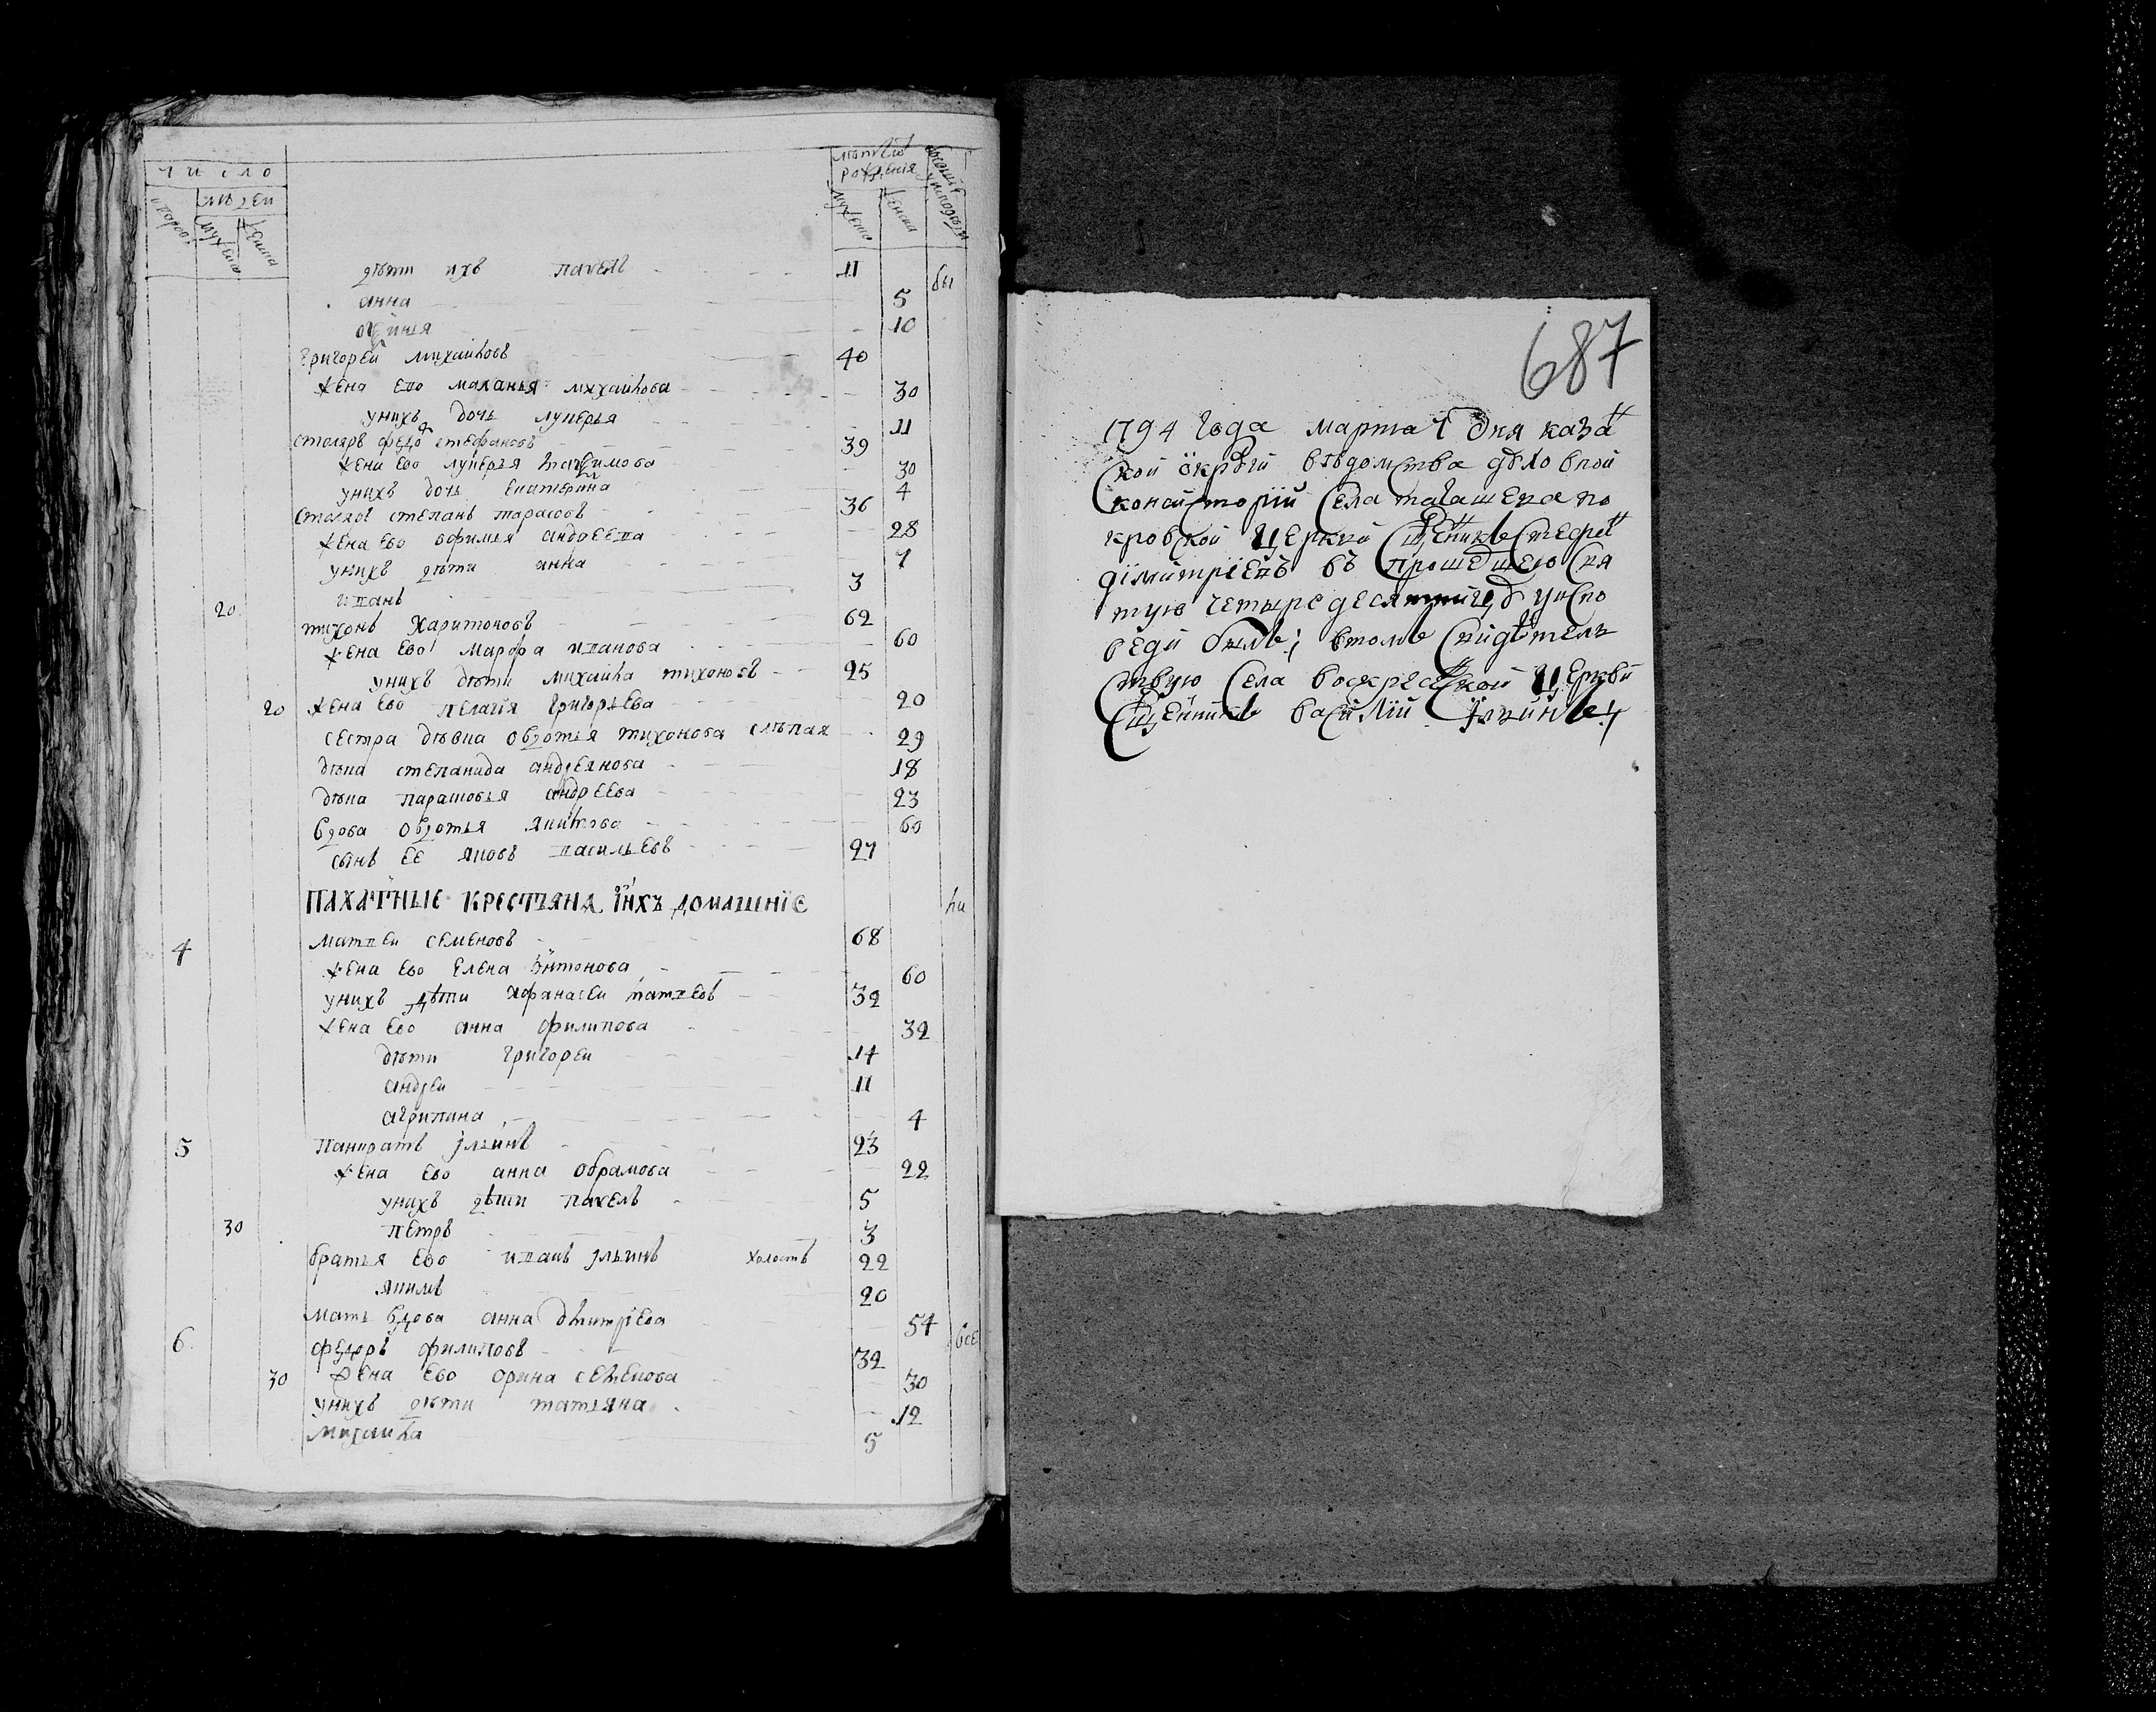 число
людеи
дворов
мужеска
женска
лета от рождения
мужеска
женска
дѣти ихъ павелъ 11
бы
анна 5
10
григореи михаиловъ 40
жена ево маланья михаилова 30
унихъ дочь лукерья 11
столяръ федо стефановъ 39
жена ево лукерья 30
унихъ дочь екатерина 4
столяръ степанъ тарасовъ 36
жена ево офимья андреева 28
унихъ дѣти анна 7
иванъ 3
20
тихонъ харитоновъ 62
жена ево марфа иванова 60
унихъ дѣти михаила тихоновъ 25
20 жена ево пелагия григорьева 20
сестра дѣвка овдотья тихонова слѣпая 29
дѣвка степанида андреянова 18
дѣвка парасковья андреева 23
вдова овдотья 60
сынъ ее яковъ васильевъ 27
ПАХАТНЫЕ КРЕСТЬЯНА ИИХЪ ДОМАШНІЕ
ли
4 матвеи семеновъ 68
жена ево елена антонова 60
унихъ дѣти афанасеи матвеевъ 32
жена ево анна филипова 32
дѣти григореи 14
андреи 11
агрипина 4
5 панкратъ ильинъ 23
жена ево анна обрамова 22
унихъ дѣти павелъ 5
30 петръ 3
братья ево иванъ ильинъ холостъ 22
якимъ 20
мать вдова анна дмитриева 54
6 федоръ филиповъ 32
все
30 жена ево орина семенова 30
унихъ дѣти татьяна 12
михаила 5
687
1794 года марта 7 дня каза
ской округи вѣдомства духовной
консисторіи села по
кровской церкви сщенникъ стефа
димитріевъ въ прошедшею свя
тую четыредесятницу уиспо
веди былъ; втомъ свидѣтель
ствую села воскресенской церкви
сщенникъ василій ильинъ